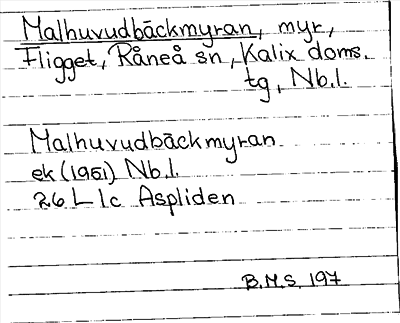 Malhuvudbäckmyran, myr,
Fligget, Råneå sn, Kalix doms.
tg, Nb.l.
Malhuvudbäckmyran
ek (1961) Nb.l.
26 L 1c Aspliden
B.M.S. 197